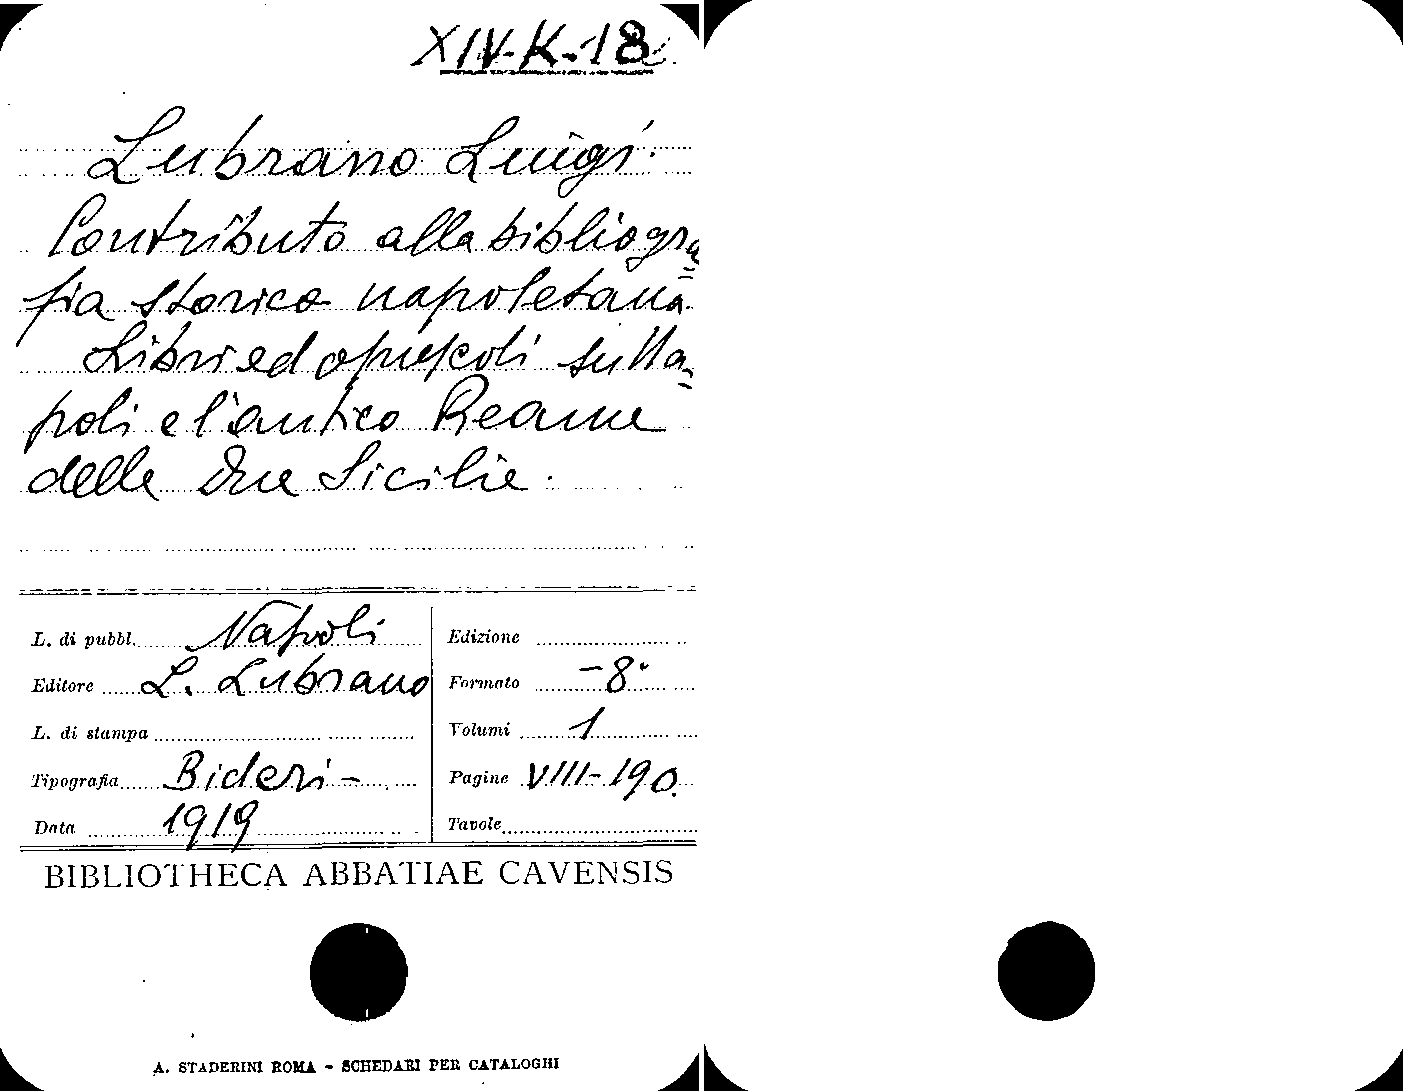 XIV-K-18
Lubrano Luigi.
Contributo alla bibliogra=
fia storica napoletana.
Libri ed opuscoli su Na=
poli e l'antico Reame
delle Due Sicilie.
L. di pubbl. Napoli
Editore L. Lubrano
L. di stampa
Tipografia Bideri-
Data 1919
Edizione
Formato -8°
Volumi 1
Pagine VIII-190.
Tavole
BIBLIOTHECA ABBATIAE CAVENSIS
A. STADERINI ROMA - SCHEDARI PER CATALOGHI